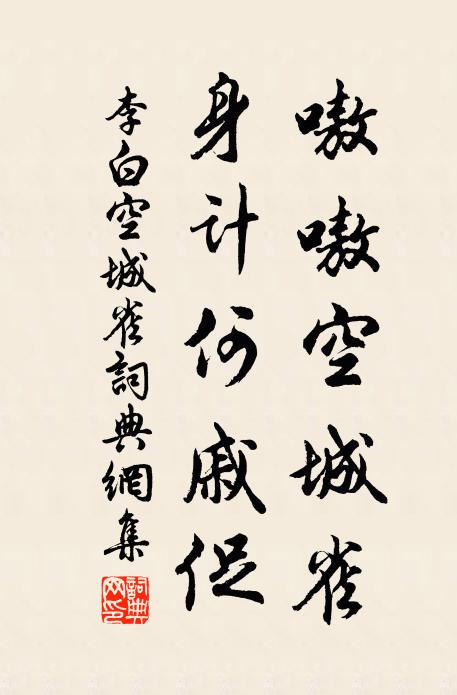 嗷嗷空城雀
身计何戚促
李白空城雀詞典網集
詞典
网印